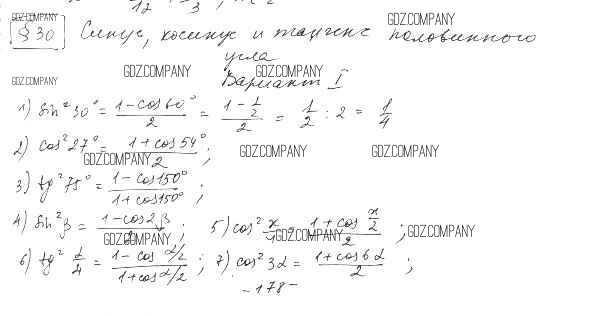 12 3
GDZ.COMPANY GDZ.COMPANY
§ 30 Синус, косинус и тангенс половинного
угла
GDZ.COMPANY GDZ.COMPANY GDZ.COMPANY
Вариант I
1) sin²30° = (1-cos60°)/2 = (1-1/2)/2 = 1/2 : 2 = 1/4
2) cos²27° = (1+cos54°)/2 ;
GDZ.COMPANY GDZ.COMPANY GDZ.COMPANY
3) tg²75° = (1-cos150°)/(1+cos150°) ;
4) sin²β = (1-cos2β)/2 ; 5) cos² x/4 = (1+cos x/2)/2 ;
GDZ.COMPANY GDZ.COMPANY GDZ.COMPANY
6) tg² α/4 = (1-cos α/2)/(1+cos α/2) ; 7) cos²3α = (1+cos6α)/2 ;
-178-